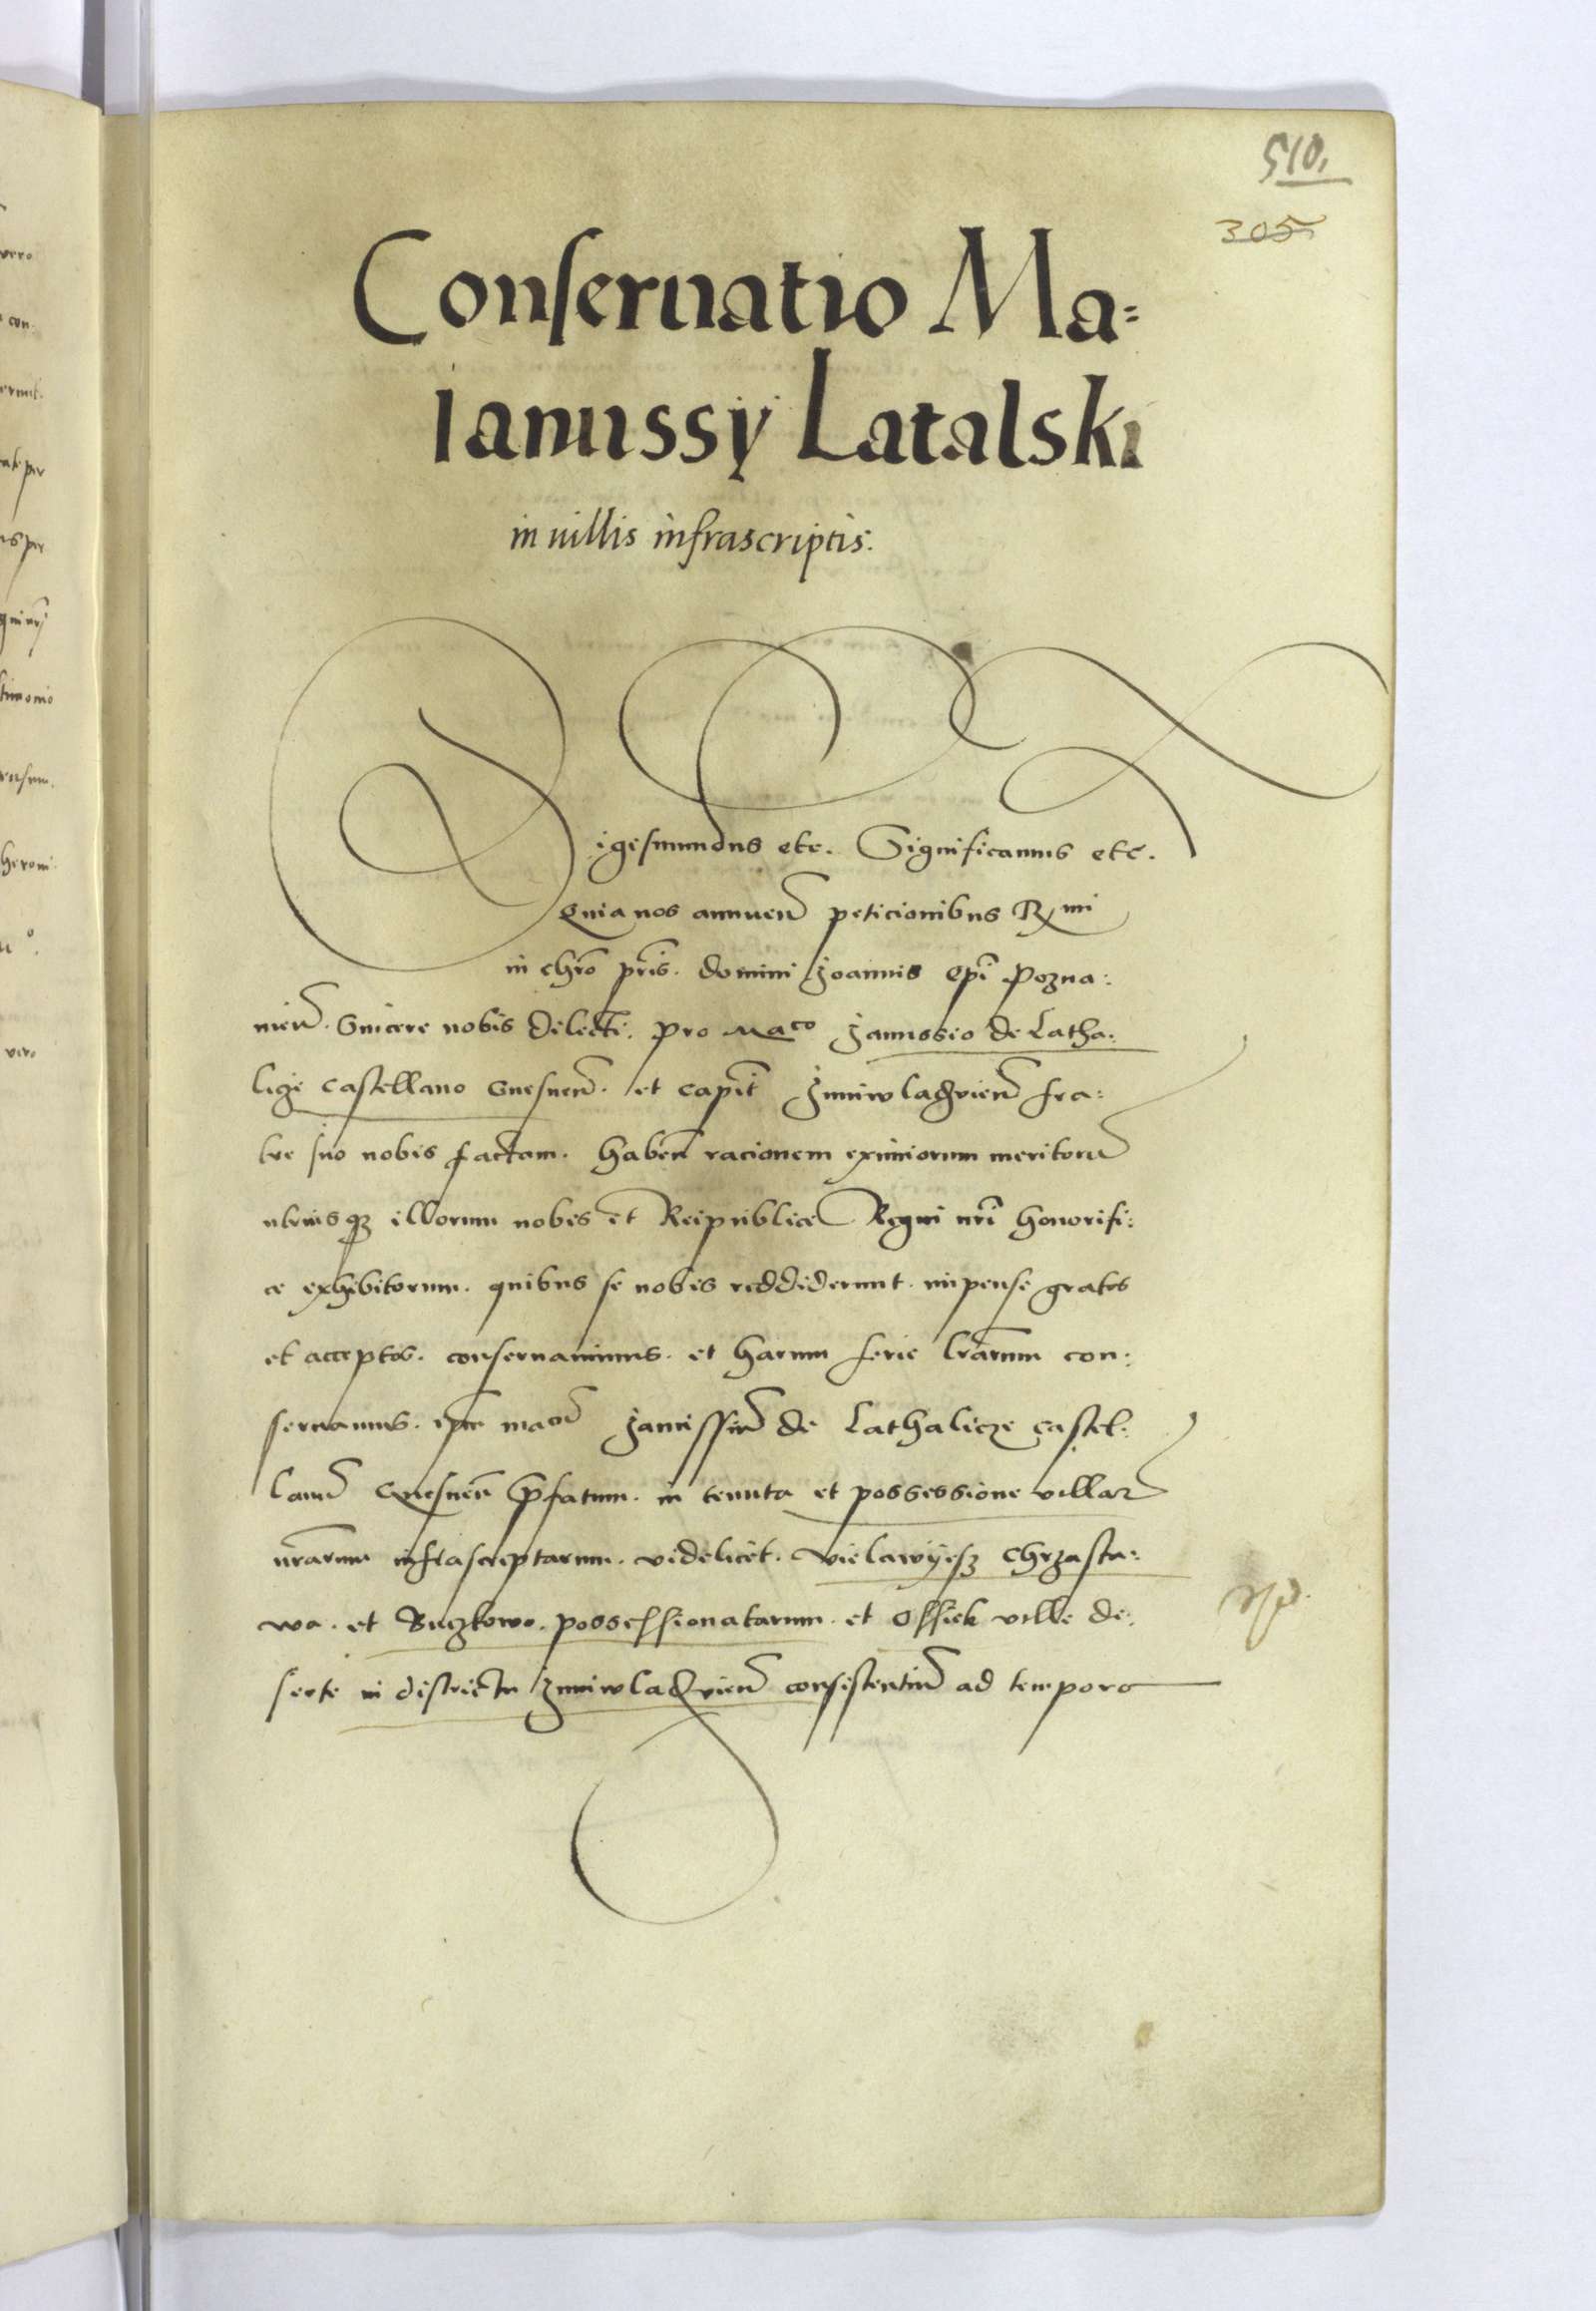 510.
305
Conseruatio Ma=
Ianussy Latalski
in uillis infrascriptis.
Sigismundus etc. Significamus etc.
Quia nos annuen̄ peticionibus Rmi
in chro pris. domini Joannis Epi Pozna:
nien̄. Sincere nobis dilecti. pro Maco Janussio de Latha:
lize Castellano Gnesnen̄. et Capit Juniwladislavien̄ fra:
tre suo nobis factam. haben̄ racionem eximiorum meritorū
utrius qz illorum nobis et Reipublice Regni nri honorifi:
ce exhibitorum. quibus se nobis reddiderunt. impense gratos
et acceptos. conseruauimus. et harum serie lrarum con:
seruamus. ipm macū Janussiū de Lathalicze Castel:
lanū Gnesnen̄ pfatum. in tenuta et possessione villarū
nrarum infrascriptarum. videlicet. Vielawyesz Chrzasta:
wa. et Buczkowo. possessionatarum. et Ossiek ville de:
serte in districtu Juniwladislavien̄ consistentiū ad tempora